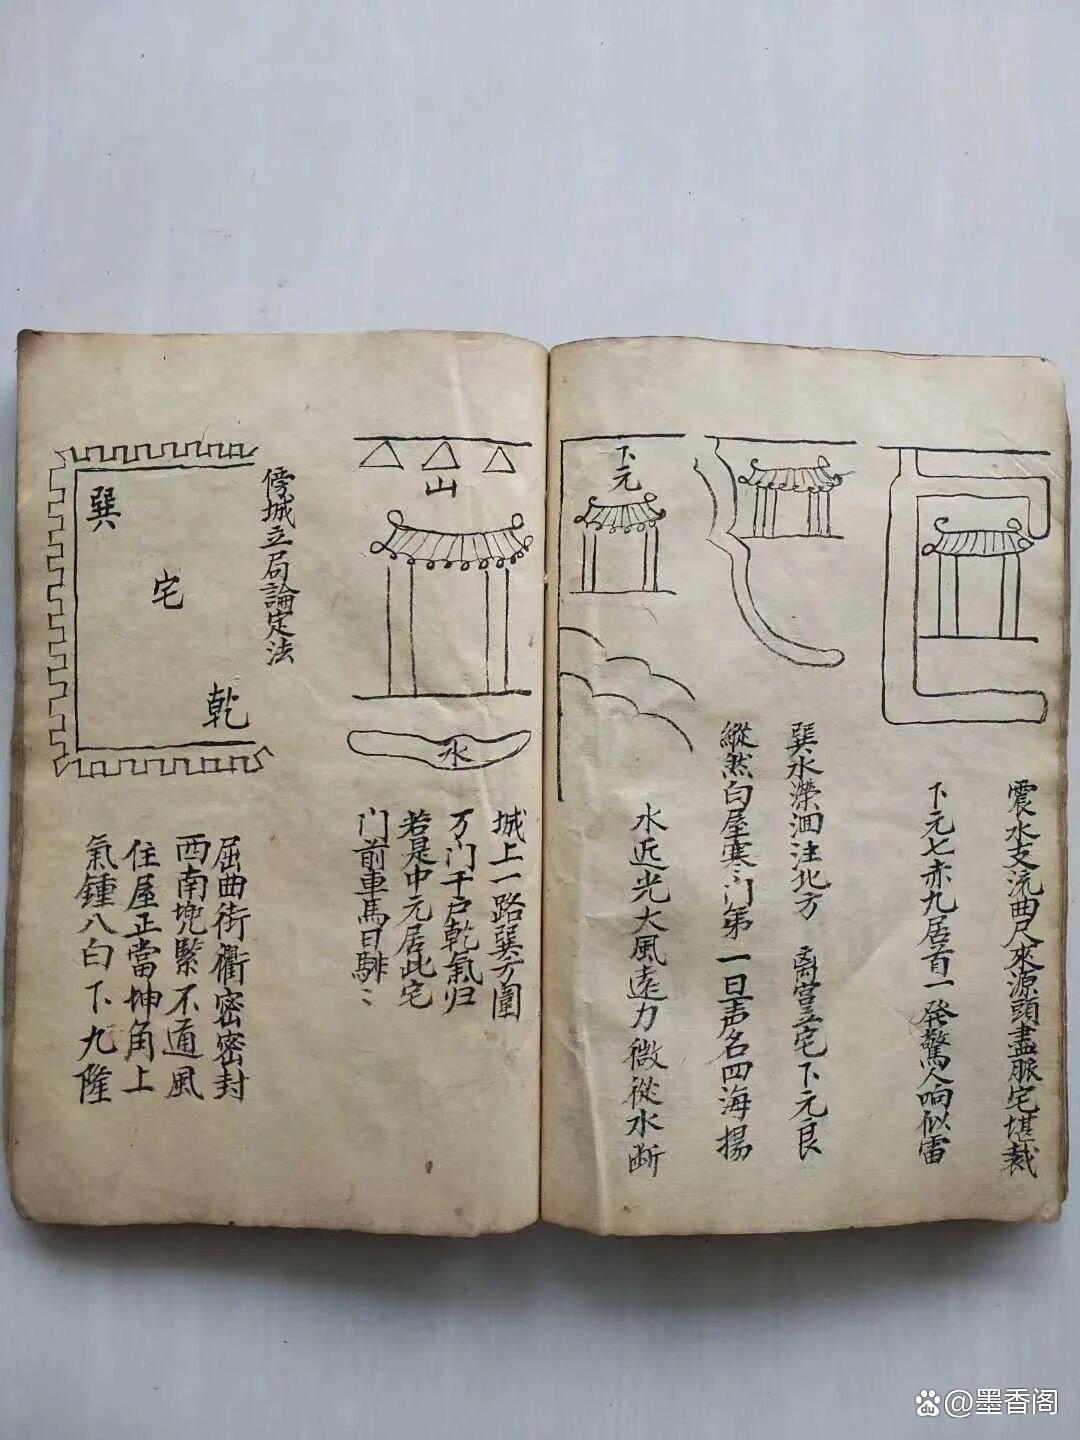 震水支流曲尺來源頭盡脈宅堪裁
下元七赤九居首一發驚人响似雷
巽水瀠洄注北方 离宫立宅下元良
縱然白屋寒门第 一旦声名四海揚
下元
水近光大風遠力微從水断
山
水
城上一路巽方圍
万门千戶乾氣归
若是中元居此宅
门前車馬日騑〻
傍城立局論定法
巽
宅
乾
屈曲街衢密密封
西南兠緊不通風
住屋正當坤角上
氣鍾八白下九隆
@墨香阁